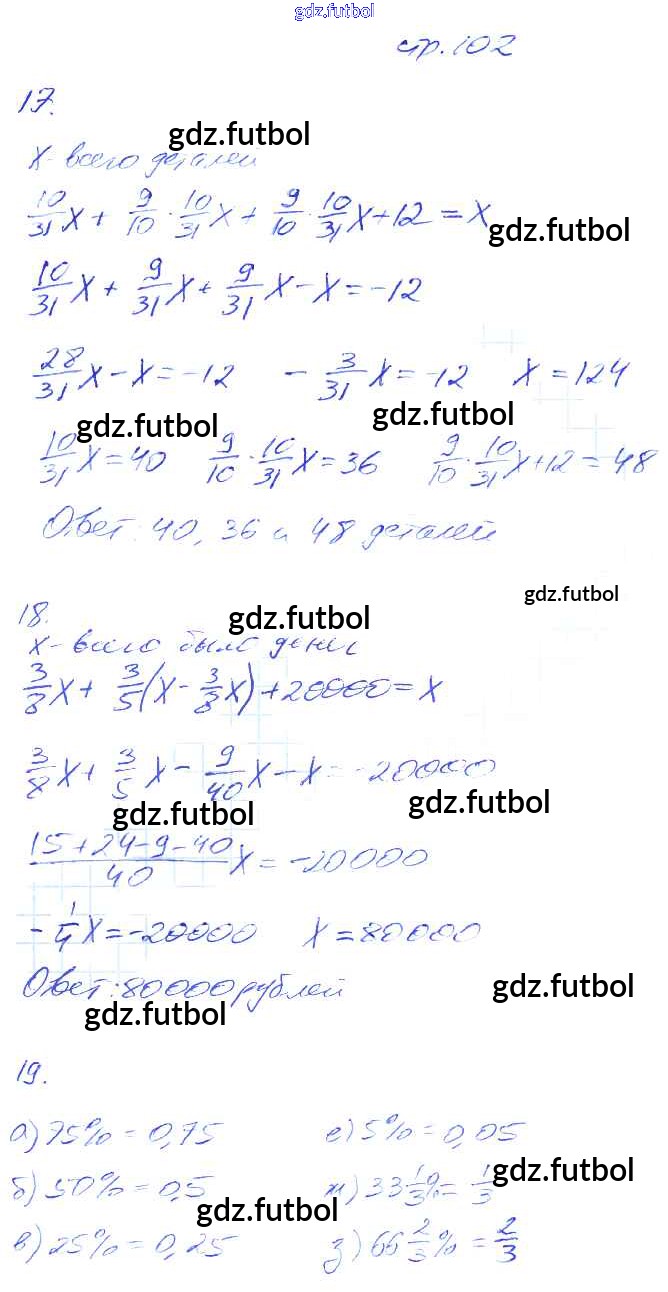 gdz.futbol
стр. 102
17.
gdz.futbol
x - всего деталей
10/31 x + 9/10 · 10/31 x + 9/10 · 10/31 x + 12 = x
gdz.futbol
10/31 x + 9/31 x + 9/31 x - x = -12
28/31 x - x = -12   - 3/31 x = -12   x = 124
gdz.futbol gdz.futbol
10/31 x = 40   9/10 · 10/31 x = 36   9/10 · 10/31 x + 12 = 48
Ответ: 40, 36 и 48 деталей
gdz.futbol
18.
gdz.futbol
x - всего было денег
3/8 x + 3/5 (x - 3/8 x) + 20000 = x
3/8 x + 3/5 x - 9/40 x - x = -20000
gdz.futbol gdz.futbol
(15 + 24 - 9 - 40)/40 x = -20000
- 1/4 x = -20000   x = 80000
Ответ: 80000 рублей
gdz.futbol
gdz.futbol
19.
а) 75% = 0,75   е) 5% = 0,05
б) 50% = 0,5   ж) 33 1/3 % = 1/3
gdz.futbol
gdz.futbol
в) 25% = 0,25   з) 66 2/3 % = 2/3